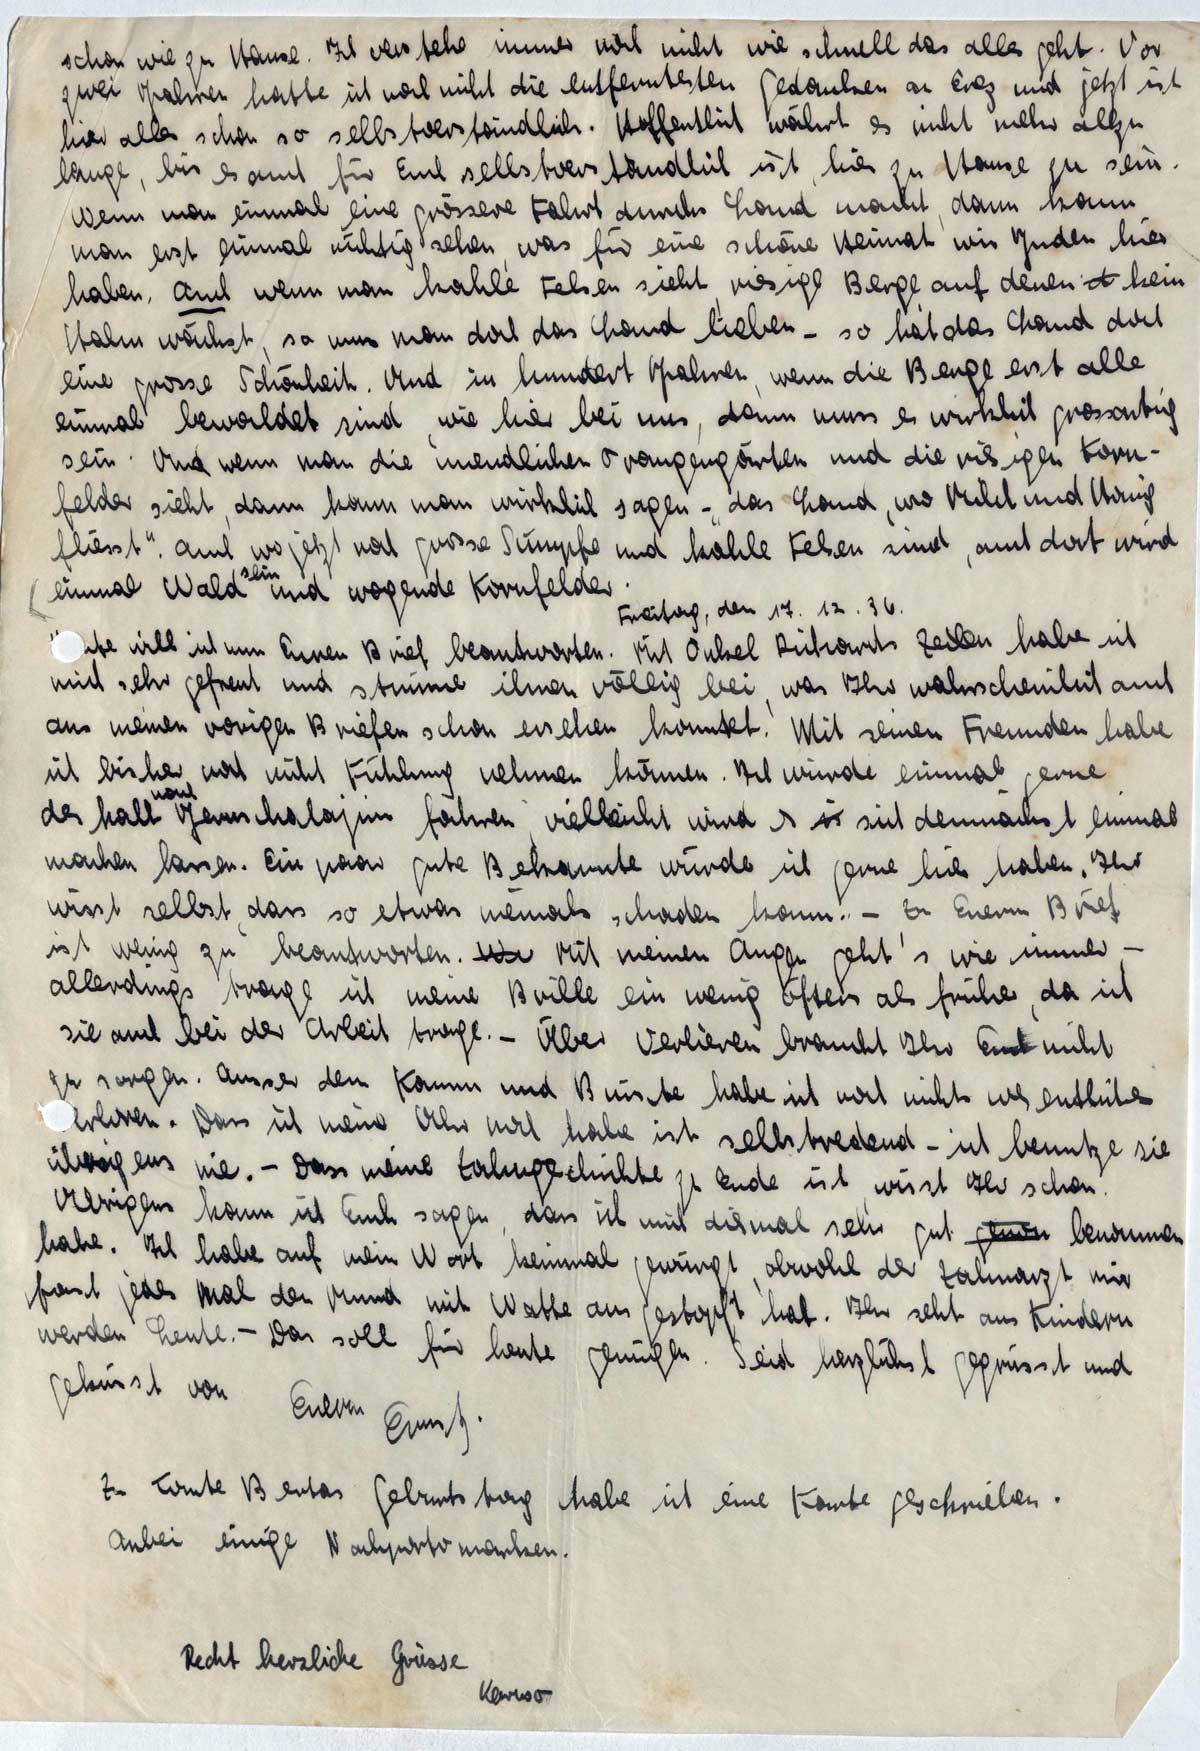 schon wie zu Hause. Ich verstehe immer noch nicht wie schnell das alles geht. Vor
zwei Jahren hatte ich noch nicht die entferntesten Gedanken an Erez und jetzt ist
hier alles schon so selbstverständlich. Hoffentlich währt es nicht mehr allzu
lange, bis es auch für Euch selbstverständlich ist, hier zu Hause zu sein.
Wenn man einmal eine grössere Fahrt durchs Land macht, dann kann
man erst einmal richtig sehen, was für eine schöne Heimat wir Juden hier
haben. Auch wenn man kahle Felsen sieht, riesige Berge auf denen kein
Halm wächst, so muss man doch das Land lieben – so hat das Land doch
eine grosse Schönheit. Und in hundert Jahren, wenn die Berge erst alle
einmal bewaldet sind, wie hier bei uns, dann muss es wirklich grossartig
sein. Und wenn man die unendlichen Orangengärten und die riesigen Korn-
felder sieht, dann kann man wirklich sagen – „das Land, wo Milch und Honig
fliesst“. Auch wo jetzt noch grosse Sümpfe und kahle Felsen sind, auch dort wird
einmal Wald sein und wogende Kornfelder.
Freitag, den 17. 12. 36.
will ich nun Euren Brief beantworten. Mit Onkel Richards Zeilen habe ich
mich sehr gefreut und stimme ihnen völlig bei, was Ihr wahrscheinlich auch
aus meinen vorigen Briefen schon ersehen konntet. Mit seinen Freunden habe
ich bisher noch nicht Fühlung nehmen können. Ich würde einmal gerne
deshalb nach Jeruschalajim fahren, vielleicht wird es sich demnächst einmal
machen lassen. Ein paar gute Bekannte würde ich gerne hier haben. Ihr
wisst selbst, dass so etwas niemals schaden kann. – Zu Euerm Brief
ist wenig zu beantworten. Mit meinen Augen geht's wie immer –
allerdings trage ich meine Brille ein wenig öfters als früher, da ich
sie auch bei der Arbeit trage. – Über Verlieren braucht Ihr Euch nicht
zu sorgen. Ausser dem Kamm und Bürste habe ich noch nichts wesentliches
verloren. Dass ich meine Uhr noch habe ist selbstredend – ich benutze sie
übrigens nie. – Dass meine Zahngeschichte zu Ende ist, wisst Ihr schon.
Übrigens kann ich Euch sagen, dass ich mich diesmal sehr gut benommen
habe. Ich habe auf mein Wort keinmal gewürgt, obwohl der Zahnarzt mir
fast jedes Mal den Mund mit Watte ausgestopft hat. Ihr seht aus Kindern
werden Leute. – Das soll für heute genügen. Seid herzlichst gegrüsst und
geküsst von Euerm Ernst.
Zu Tante Bertas Geburtstag habe ich eine Karte geschrieben.
Anbei einige Nachportomarken.
Recht herzliche Grüsse